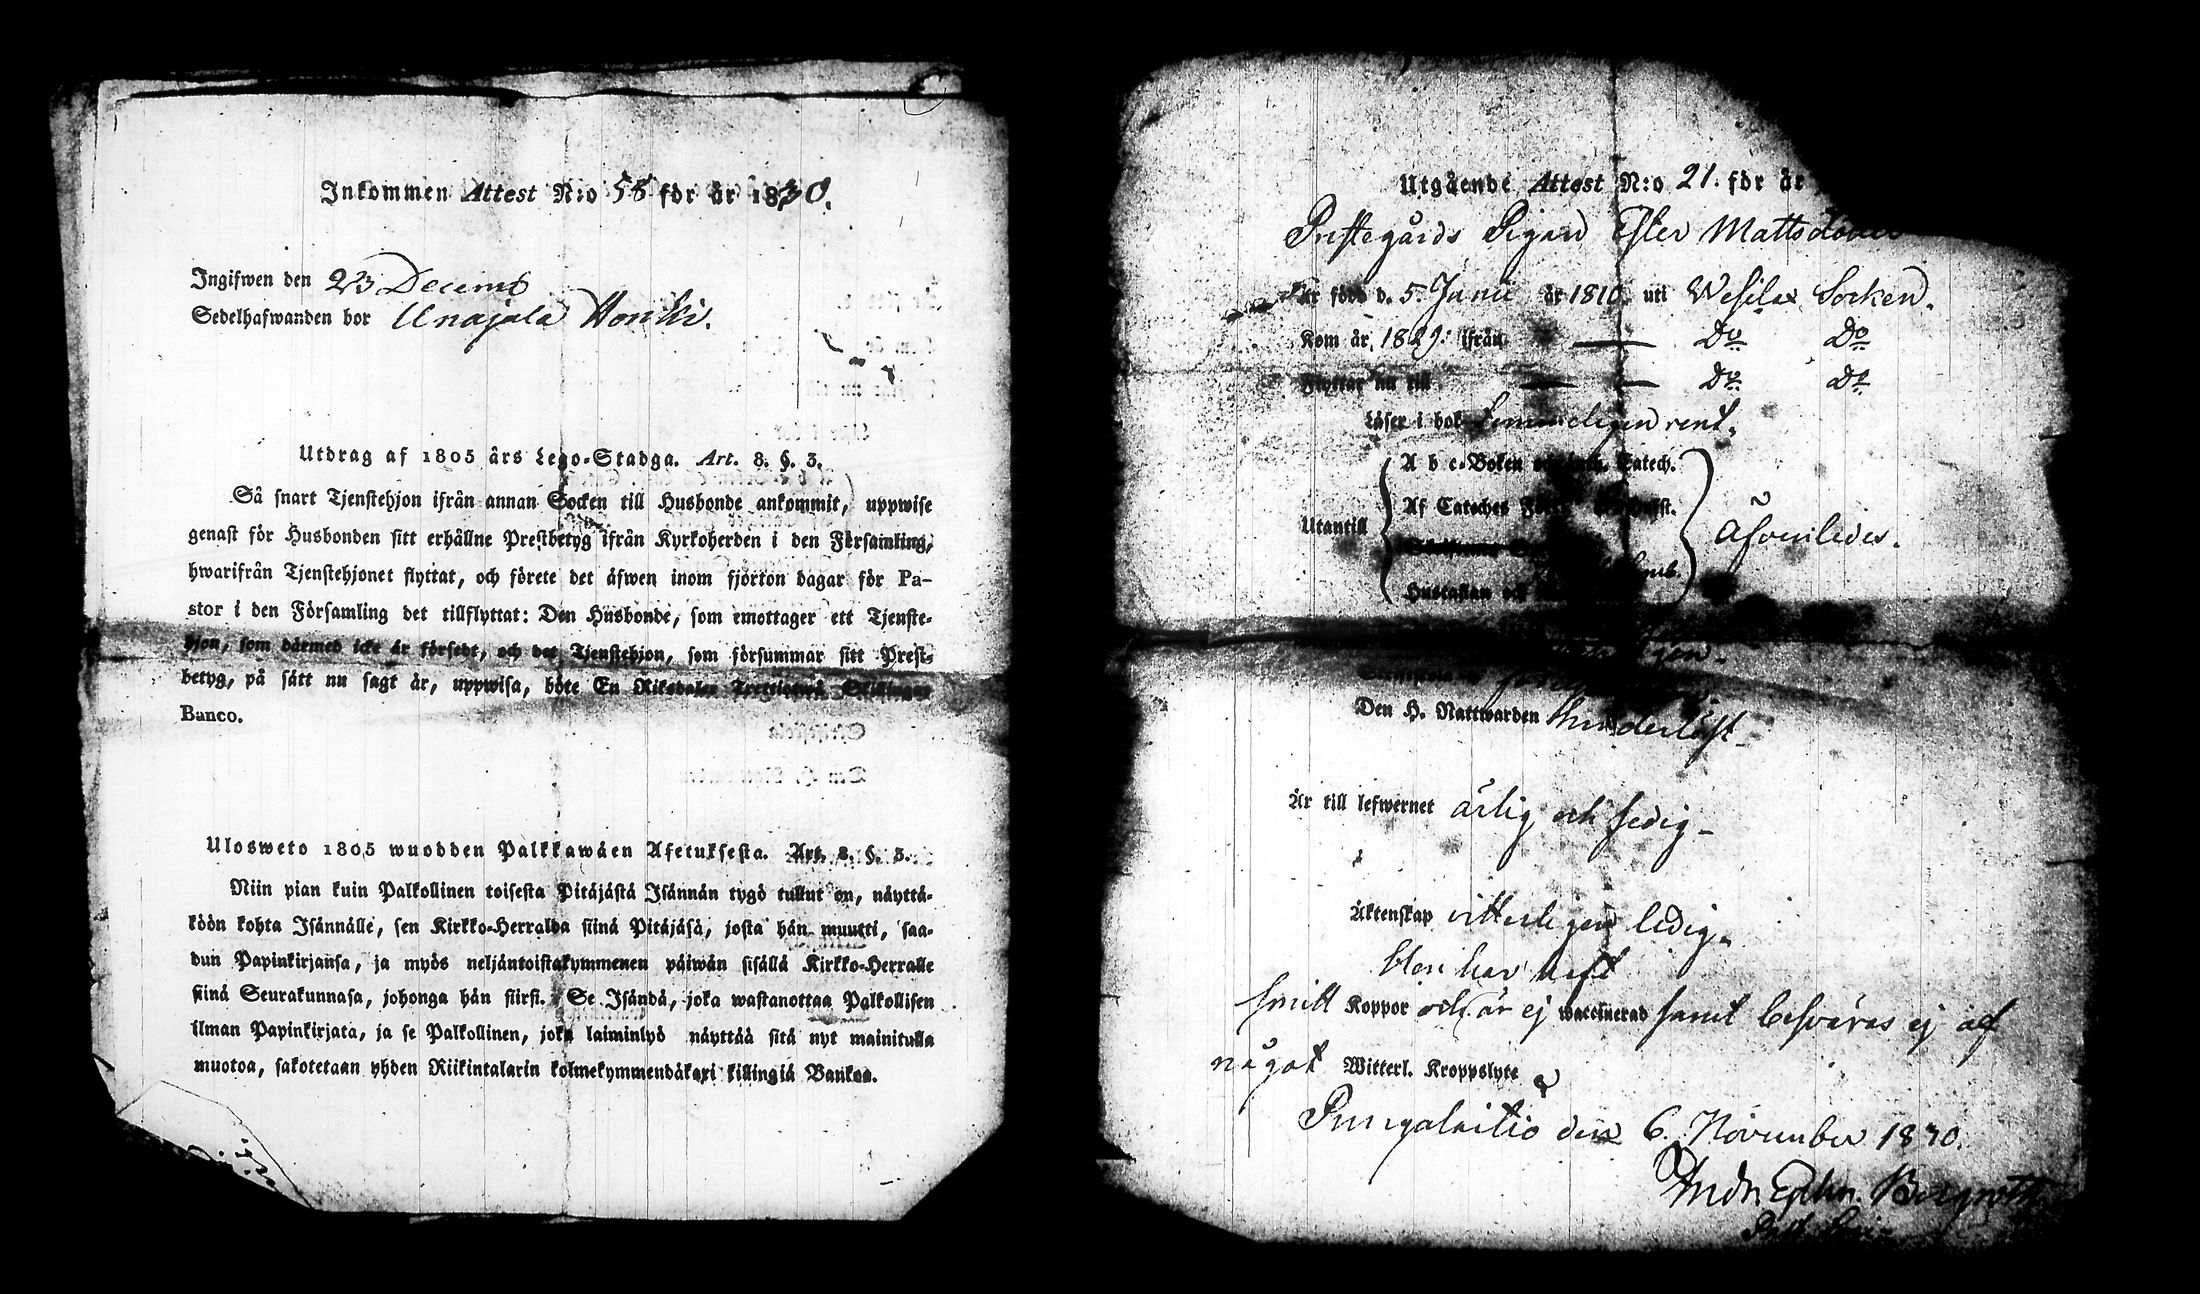 Inkommen Attest N:o 58 för år 1830.
Ingifwen den 23 Decemb
Sedelhafwanden bor Unajala Honki.
Utdrag af 1805 års Lego-Stadga. Art. 8. §. 3.
Så snart Tjenstehjon ifrån annan Socken till Husbonde ankommit, uppwise
genast för Husbonden sitt erhållne Prestbetyg ifrån Kyrkoherden i den Församling,
hwarifrån Tjenstehjonet flyttat, och förete det äfwen inom fjorton dagar för Pa-
stor i den Församling det tillflyttat: Den Husbonde, som emottager ett Tjenste-
hjon, som därmed icke är försedt, och det Tjenstehjon, som försummar sitt Prest-
betyg, på sätt nu sagt är, uppwisa, böte En Riksdaler Trettiotwå Skillingar
Banco.
Ulosweto 1805 wuodden Palkkawäen Asetuksesta. Art. 8. §. 3.
Niin pian kuin Palkollinen toisesta Pitäjästä Isännän tygö tullut on, näyttä-
köön kohta Isännälle, sen Kirkko-Herralda siinä Pitäjäsä, josta hän muutti, saa-
dun Papinkirjansa, ja myös neljäntoistakymmenen päiwän sisällä Kirkko-Herralle
siinä Seurakunnasa, johonga hän siirsi. Se Isändä, joka wastanottaa Palkollisen
ilman Papinkirjata, ja se Palkollinen, joka laiminlyö näyttää sitä nyt mainitulla
muotoa, sakotetaan yhden Riikintalarin kolmekymmendäkaxi killingiä Bankoa.
Utgående Attest N:o 21. för år
Prestegårds Pigan Ester Mattsdotter
Är född d. 5. Junii år 1810. uti Wesilax Socken.
Kom år 1829. ifrån — Do Do
Flyttar nu till — — Do Do
Läser i bok rent.
Utantill
A b c-Boken och Luth. Catech.
Af Cateches
Hustaflan och
Äfvenledes.
Den H. Nattwarden hinderlöst
Är till lefwernet ärlig och sedig-
Äktenskap vitterligen ledig.
Hon har haft
Koppor och är ej waccinerad samt besväras ej af
något Witterl. Kroppslyte
Pungalaitio den 6. November 1830.
Andr. Bergroth